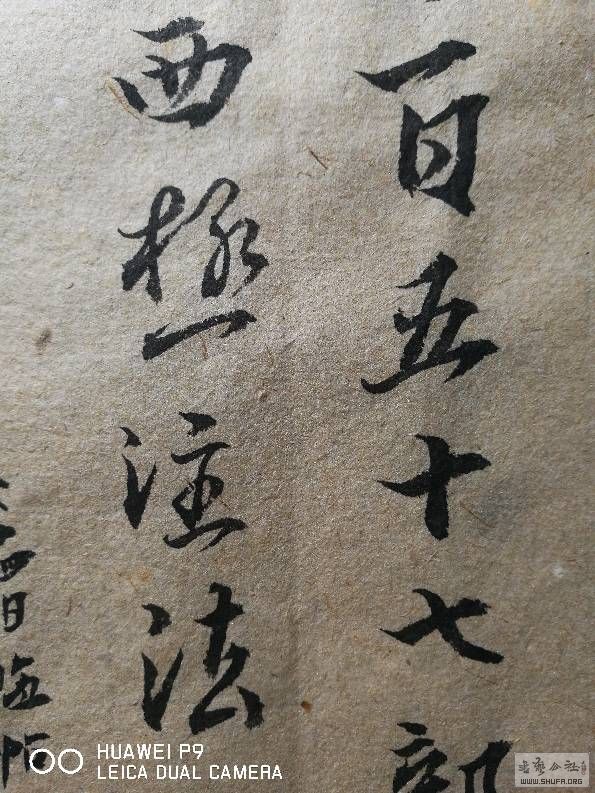 百五十七部
西極注法
四日臨
HUAWEI P9
LEICA DUAL CAMERA
书艺公社
WWW.SHUFA.ORG